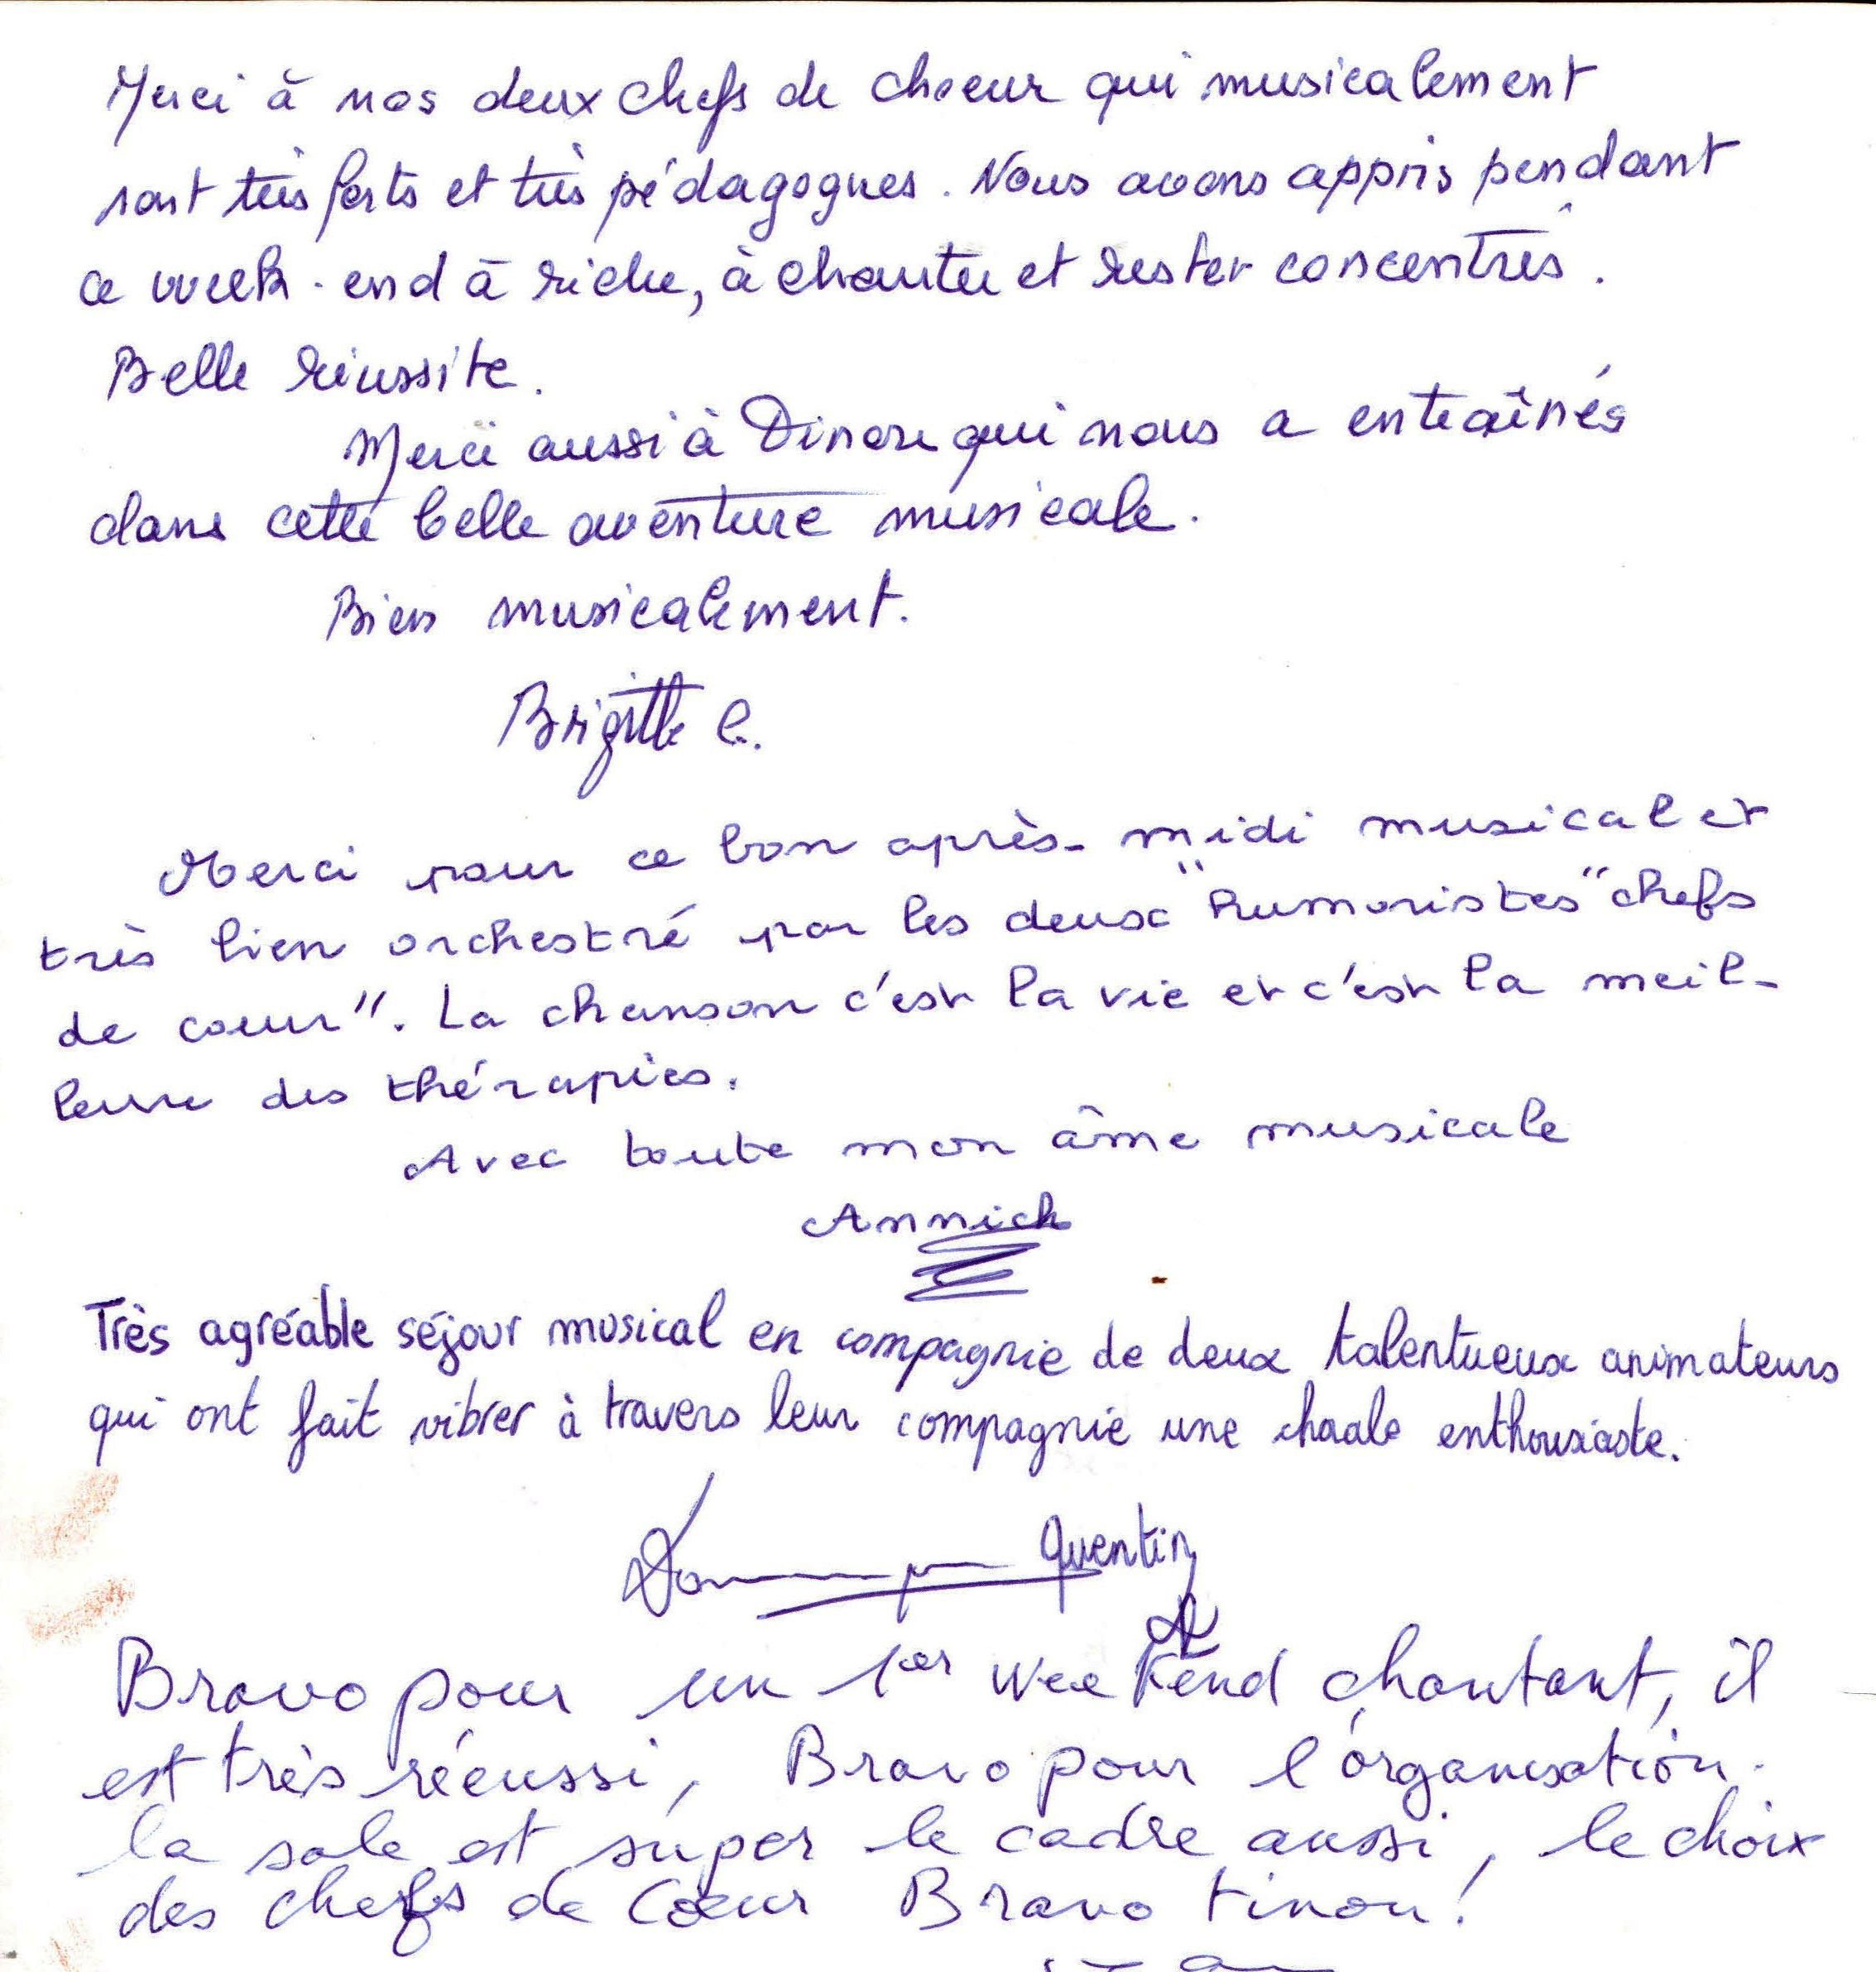 Merci à nos deux chefs de choeur qui musicalement
sont très forts et très pédagogues. Nous avons appris pendant
ce week-end à riche, à chanter et rester concentrés.
Belle réussite.
Merci aussi à qui nous a entraînés
dans cette belle aventure musicale.
Bien musicalement.
Brigitte C.
Merci pour ce bon après-midi musical et
très bien orchestré par les deux "humoristes" chefs
de cœur". La chanson c'est la vie et c'est la meil-
leure des thérapies.
Avec toute mon âme musicale
Annick
Très agréable séjour musical en compagnie de deux talentueux animateurs
qui ont fait vibrer à travers leur compagnie une enthousiaste.
Quentin
Bravo pour un 1er weekend chantant, il
est très réeussi, Bravo pour l'organisation.
la sale est super le cadre aussi, le choix
des chefs de Cœur Bravo Tinou!